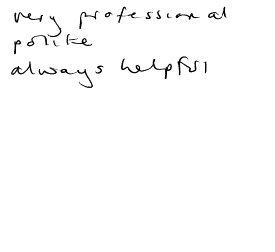 very professional
polite
always helpful